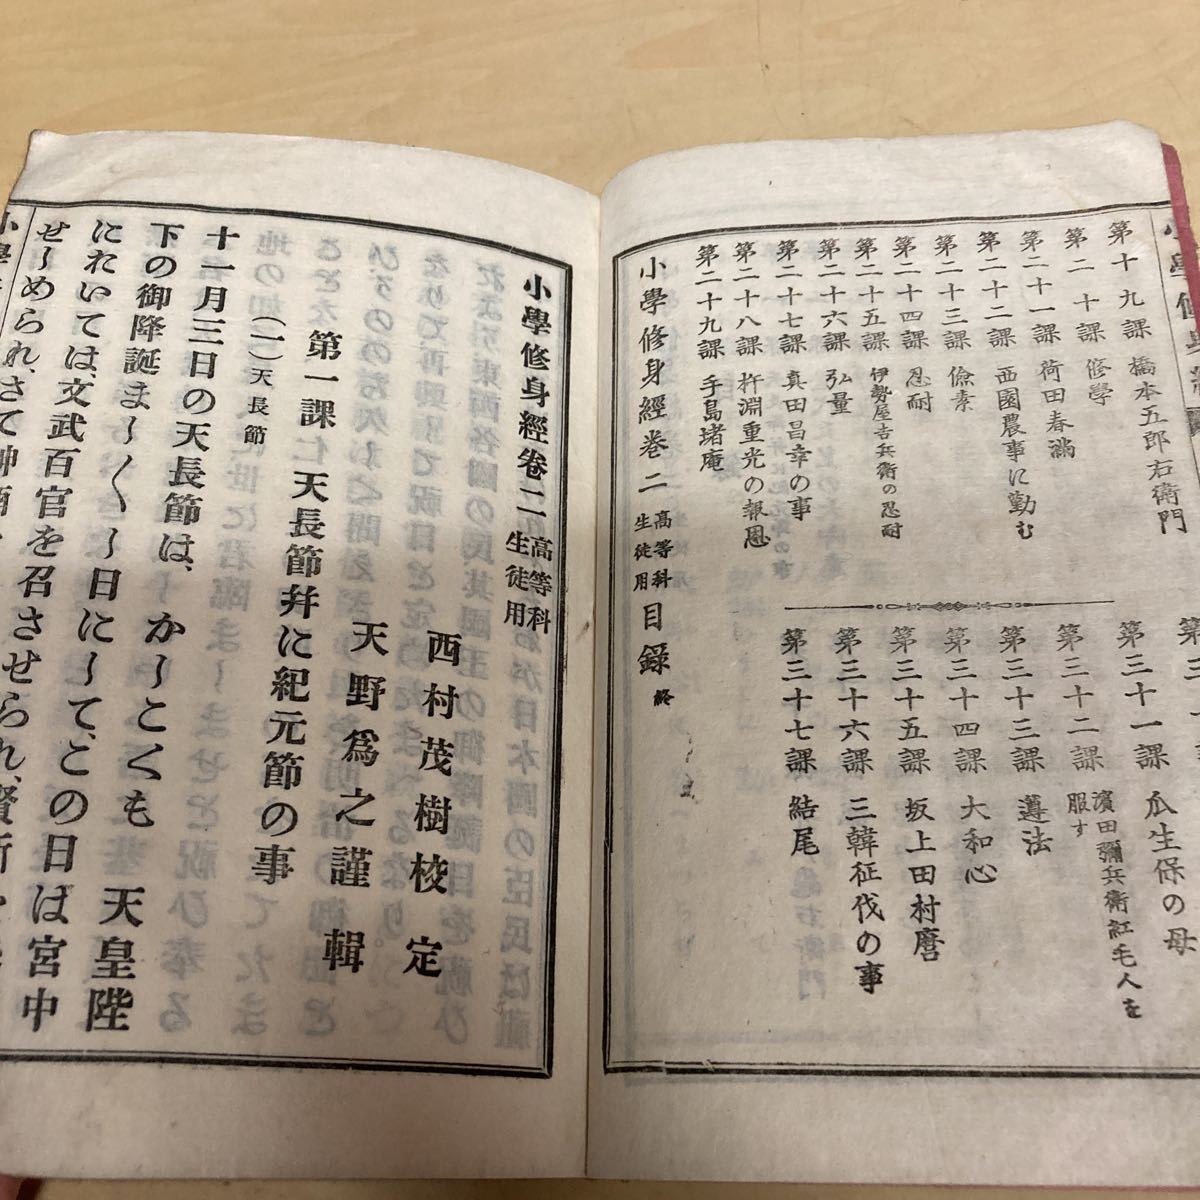 第十九課　橋本五郎右衛門
第二十課　修學
第二十一課　荷田春滿
第二十二課　西園農事に勤む
第二十三課　儉素
第二十四課　忍耐
第二十五課　伊勢屋吉兵衛の忍耐
第二十六課　弘量
第二十七課　真田昌幸の事
第二十八課　杵淵重光の報恩
第二十九課　手島堵庵
第三十一課　瓜生保の母
第三十二課　濱田彌兵衛紅毛人を服す
第三十三課　遵法
第三十四課　大和心
第三十五課　坂上田村麿
第三十六課　三韓征伐の事
第三十七課　結尾
小學修身經卷二　高等科生徒用　目録　終
小學修身經卷二　高等科生徒用
西村茂樹校定
天野爲之謹輯
第一課　天長節幷に紀元節の事
（一）天長節
十一月三日の天長節は、かしこくも　天皇陛
下の御降誕ましましゝ日にして、この日ば宮中
にれいては、文武百官を召させられ、賢所
せしめられ、さて